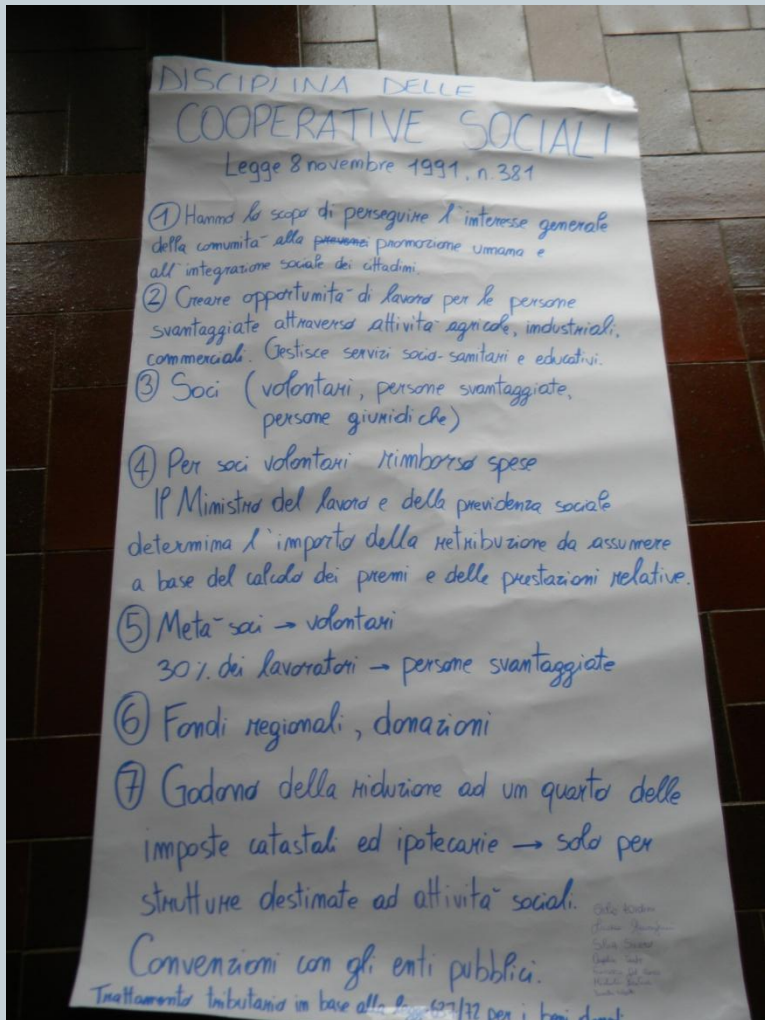 DISCIPLINA DELLE
COOPERATIVE SOCIALI
Legge 8 novembre 1991, n. 381
① Hanno lo scopo di perseguire l'interesse generale
della comunità alla promozione umana e
all'integrazione sociale dei cittadini.
② Creare opportunità di lavoro per le persone
svantaggiate attraverso attività agricole, industriali,
commerciali. Gestisce servizi socio-sanitari e educativi.
③ Soci (volontari, persone svantaggiate,
persone giuridiche)
④ Per soci volontari rimborso spese
Il Ministro del lavoro e della previdenza sociale
determina l'importo della retribuzione da assumere
a base del calcolo dei premi e delle prestazioni relative.
⑤ Metà soci → volontari
30% dei lavoratori → persone svantaggiate
⑥ Fondi regionali, donazioni
⑦ Godono della riduzione ad un quarto delle
imposte catastali ed ipotecarie → solo per
strutture destinate ad attività sociali.
Convenzioni con gli enti pubblici.
Trattamento tributario in base alla legge /72 per i beni donati